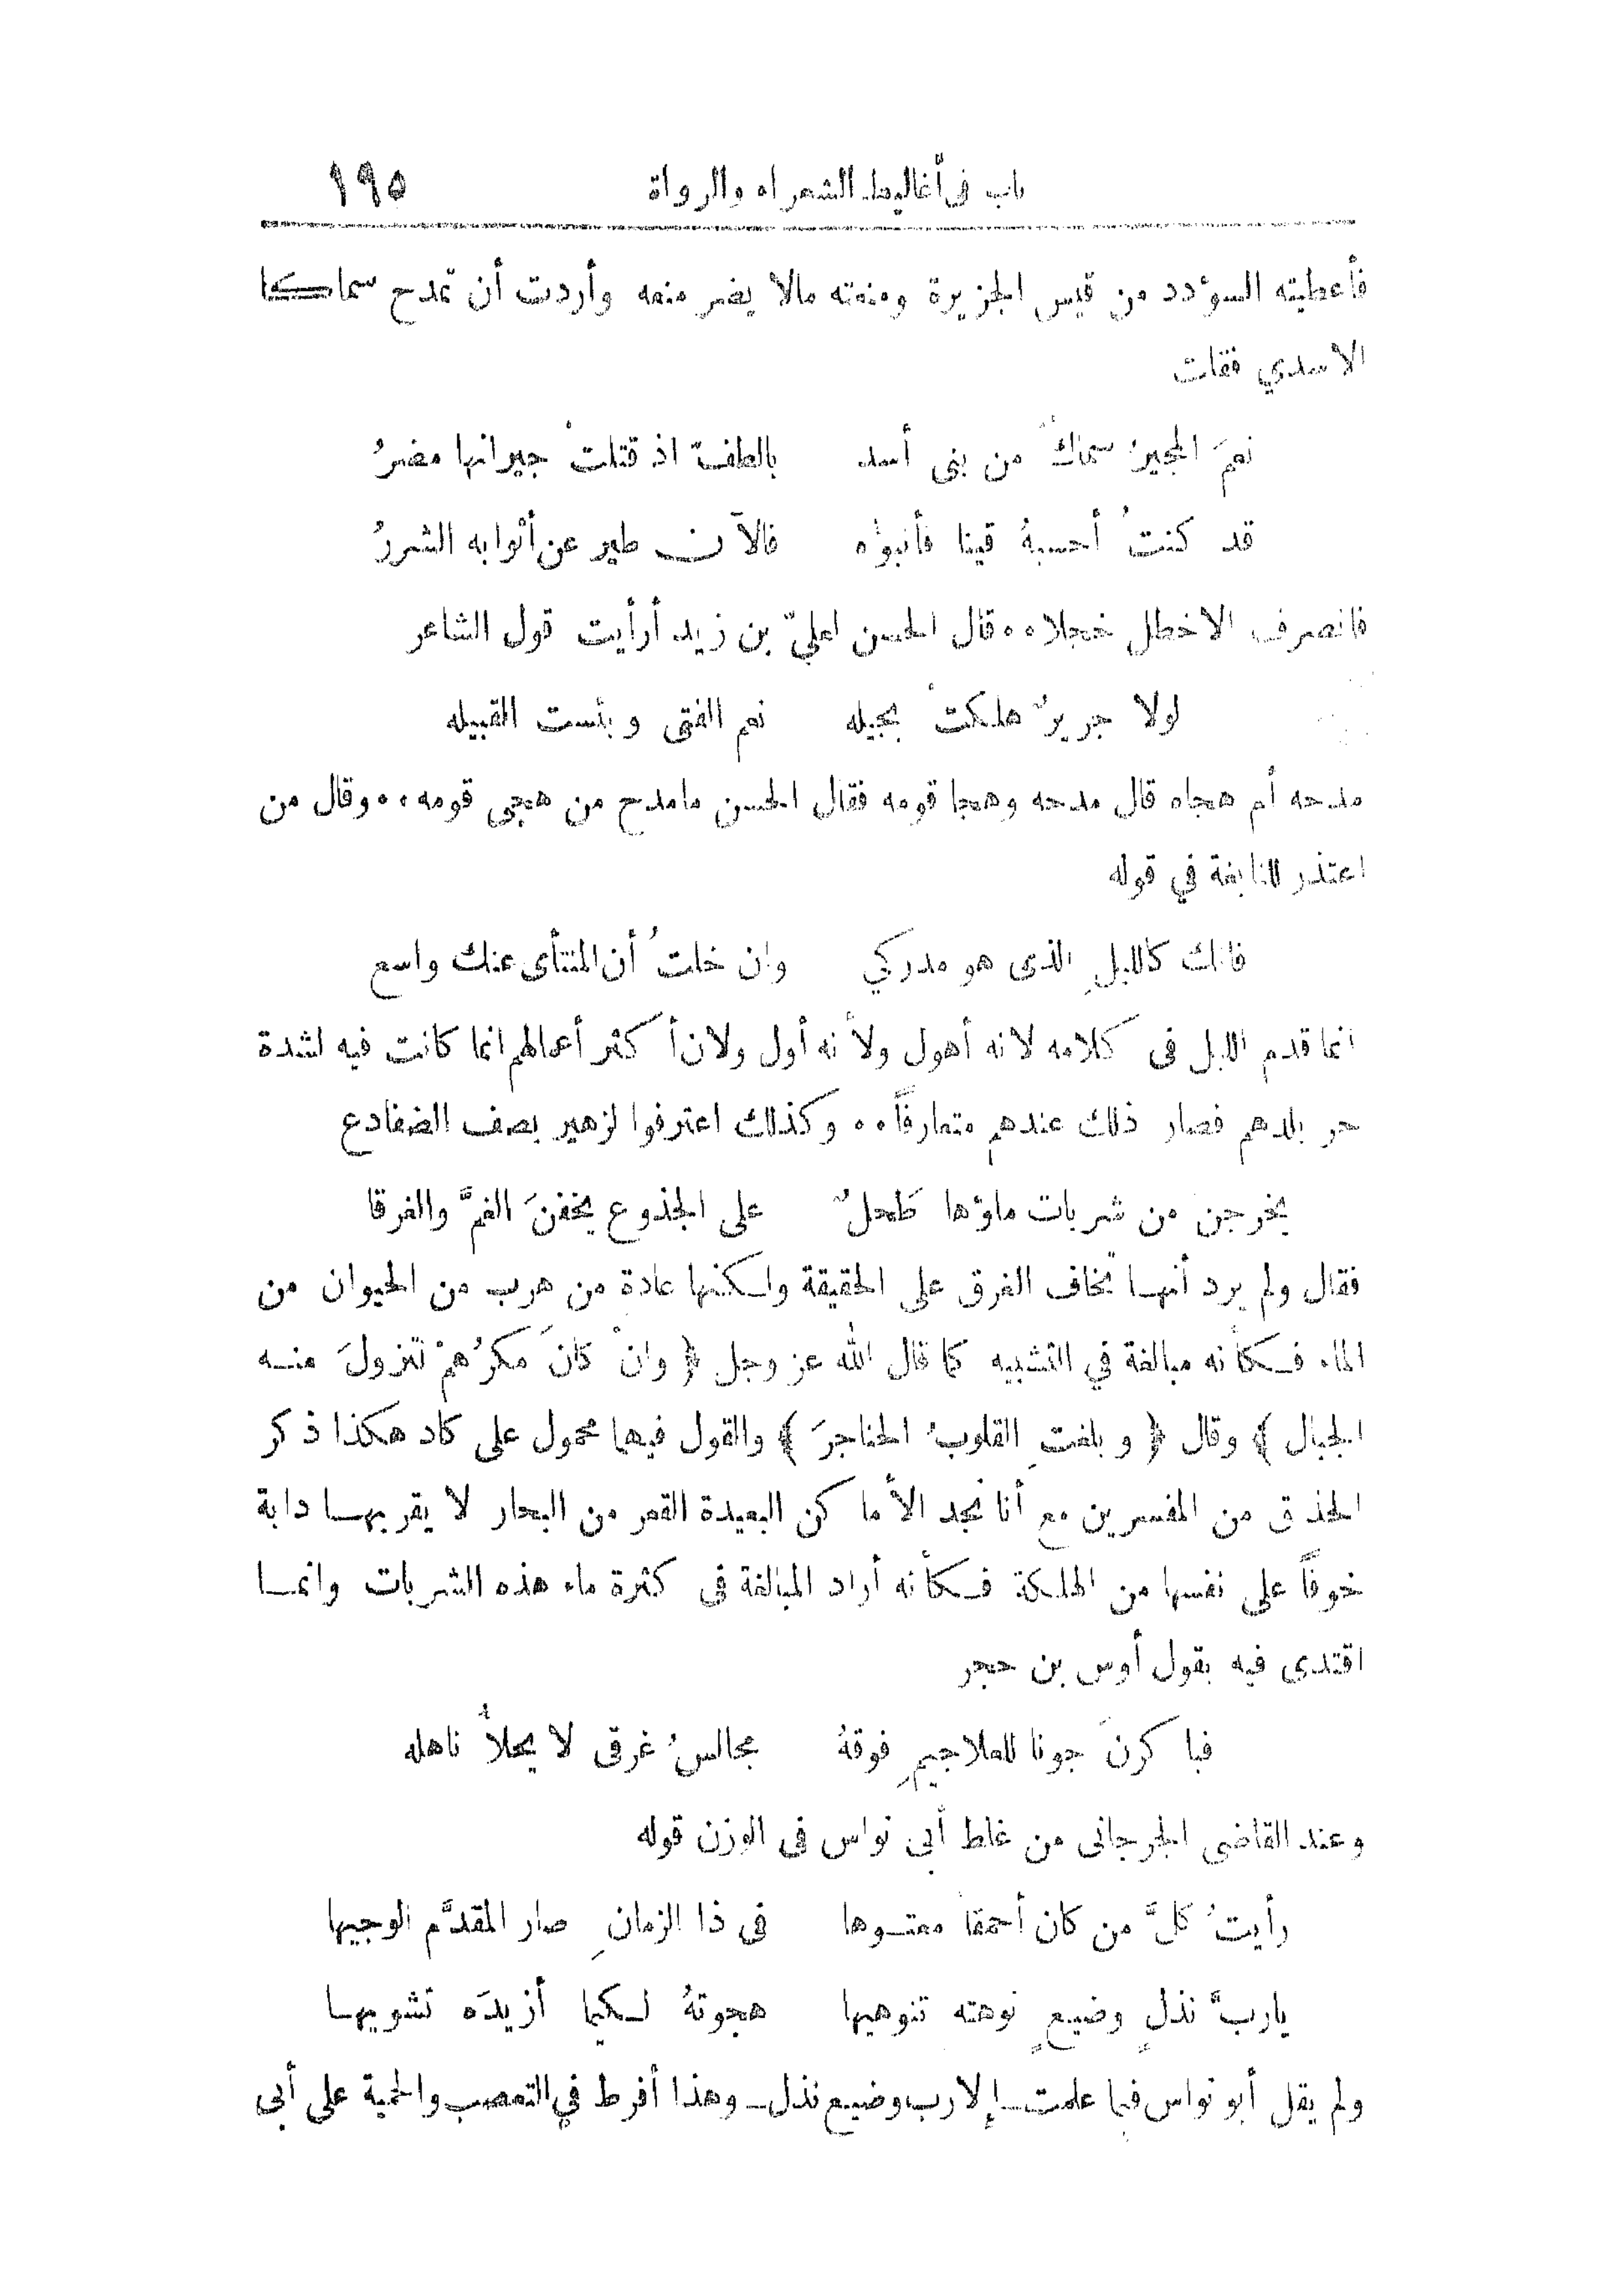 باب في أغاليط الشعراء والرواة ١٩٥
فأعطيته السؤدد من قيس الجزيرة ومنعته مالا يضر منعه وأردت أن تمدح سماكا
الاسدي فقلت
نعمَ المجيرُ سماكٌ من بنى أسد بالطفّ اذ قتلتْ جيرانها مضرُ
قد كنتُ أحسبهُ قينا فأنبؤه فالآن طير عن أثوابه الشررُ
فانصرف الاخطل خجلا.. قال الحسن لعليّ بن زيد أرأيت قول الشاعر
لولا جريرٌ هلكتْ بجيله نعم الفتى وبئست القبيله
مدحه أم هجاه قال مدحه وهجا قومه فقال الحسن مامدح من هجى قومه.. وقال من
اعتذر للنابغة في قوله
فانك كالليلِ الذى هو مدركي وان خلتُ أن المنتأى عنك واسع
انما قدم الليل فى كلامه لانه أهول ولأنه أول ولان أكثر أعمالهم انما كانت فيه لشدة
حر بلدهم فصار ذلك عندهم متعارفاً.. وكذلك اعترفوا لزهير يصف الضفادع
يخرجن من شربات ماؤها طَحلٌ على الجذوع يخفنَ الغمَّ والغرقا
فقال ولم يرد أنهـا تخاف الغرق على الحقيقة ولكنها عادة من هرب من الحيوان من
الماء فكأنه مبالغة في التشبيه كما قال الله عز وجل ﴿ وانْ كانَ مكرُهمْ لتزولَ منـه
الجبال ﴾ وقال ﴿ وبلغتِ القلوبُ الحناجرَ ﴾ والقول فيهما محمول على كاد هكذا ذكر
الحذق من المفسرين مع أنا نجد الأماكن البعيدة القعر من البحار لا يقربهـا دابة
خوفاً على نفسها من الهلكة فكأنه أراد المبالغة فى كثرة ماء هذه الشربات وانمـا
اقتدى فيه بقول أوس بن حجر
فباكرنَ جونا للعلاجيمِ فوقهُ مجالسُ غرقى لا يحلأُ ناهله
وعند القاضى الجرجانى من غلط أبى نواس فى الوزن قوله
رأيتُ كلَّ من كان أحمقا معتـوها فى ذا الزمانِ صار المقدَّم الوجيها
ياربَّ نذلٍ وضيعٍ نوهته تنوهيها هجوتهُ لكيما أزيدَه تشويهـا
ولم يقل أبو نواس فيما علمت ـ إلا رب وضيع نذل ـ وهذا أفرط في التعصب والحمية على أبى